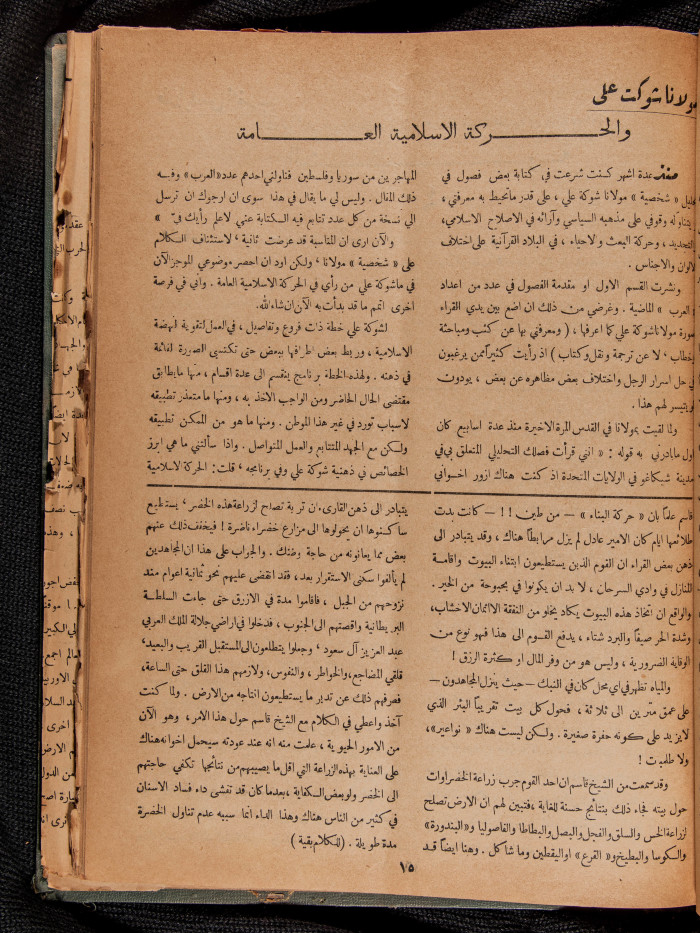 مولانا شوكت علي
والحركة الاسلامية العامة
منذ عدة اشهر كنت شرعت في كتابة بعض فصول في
تحليل « شخصية » مولانا شوكة علي ، على قدر ماتحيط به معرفتي ،
وقوفي على مذهبه السياسي وآرائه في الاصلاح الاسلامي ،
التجديد ، وحركة البعث والاحياء ، في البلاد القرآنية على اختلاف
الالوان والاجناس .
ونشرت القسم الاول او مقدمة الفصول في عدد من اعداد
« العرب » الماضية . وغرضي من ذلك ان اضع بين يدي القراء
صورة مولانا شوكة علي كما اعرفها ، ( ومعرفتي بها عن كثب ومباحثة
وخطاب ، لا عن ترجمة ونقل وكتاب ) اذ رأيت كثيراً ممن يرغبون
في حل اسرار الرجل واختلاف بعض مظاهره عن بعض ، يودون
لو يتيسر لهم هذا .
ولما لقيت بمولانا في القدس المرة الاخيرة منذ عدة اسابيع كان
اول مابادرني به قوله : « انني قرأت فصلك التحليلي المتعلق بي في
مدينة شيكاغو في الولايات المتحدة اذ كنت هناك ازور اخواني
المهاجرين من سوريا وفلسطين فناولني احدهم عدد «العرب» وفيه
ذلك المقال . وليس لي ما يقال في هذا سوى ان ارجوك ان ترسل
الي نسخة من كل عدد تتابع فيه الكتابة عني لاعلم رأيك في" »
والآن ارى ان المناسبة قد عرضت ثانية ، لاستئناف الكلام
على « شخصية » مولانا ، ولكن اود ان احصر موضوعي الموجز الآن
في ماشوكة علي من رأي في الحركة الاسلامية العامة . واني في فرصة
اخرى اتمم ما قد بدأت به الآن ان شاء الله .
لشوكة علي خطة ذات فروع وتفاصيل ، في العمل لتقوية النهضة
الاسلامية ، وربط بعض اطرافها ببعض حتى تكتسي الصورة القائمة
في ذهنه . ولهذه الخطة برنامج ينقسم الى عدة اقسام ، منها ما يطابق
مقتضى الحال الحاضر ومن الواجب الاخذ به ، ومنها ما متعذر تطبيقه
لاسباب تورد في غير هذا الموطن . ومنها ما هو من الممكن تطبيقه
ولكن مع الجهد المتتابع والعمل المتواصل . واذا سألتني ما هي ابرز
الخصائص في ذهنية شوكة علي وفي برنامجه ، قلت : الحركة الاسلامية
قاسم علما بان « حركة البناء » — من طين !! — كانت بدت
طلائعها ايام كان الامير عادل لم يزل مرابطاً هناك ، وقد يتبادر الى
ذهن بعض القراء ان القوم الذين يستطيعون ابتناء البيوت واقامة
المنازل في وادي السرحان ، لا بد ان يكونوا في بحبوحة من الخير .
والواقع ان اتخاذ هذه البيوت يكاد يخلو من النفقة الا اثمان الاخشاب ،
وشدة الحر صيفاً والبرد شتاء ، يدفع القوم الى هذا فهو نوع من
الوقاية الضرورية ، وليس هو من وفر المال او كثرة الرزق !
والمياه تظهر في اي محل كان في النبك – حيث ينزل المجاهدون –
على عمق مترين الى ثلاثة ، فحول كل بيت تقريباً البئر الذي
لا يزيد على كونه حفرة صغيرة . ولكن ليست هناك « نواعير » ،
ولا طلمبات !
وقد سمعت من الشيخ قاسم ان احد القوم جرب زراعة الخضراوات
حول بيته فجاء ذلك بنتائج حسنة للغاية ، فتبين لهم ان الارض تصلح
لزراعة الخس والسلق والفجل والبصل والبطاطا والفاصوليا و «البندورة»
والكوسا والبطيخ و« القرع » او اليقطين وما شاكل . وهنا ايضاً قد
يتبادر الى ذهن القارىء ان تربة تصلح لزراعة هذه الخضر ، يستطيع
ساكنوها ان يحولوها الى مزارع خضراء ناضرة ! فيخفف ذلك عنهم
بعض مما يعانونه من حاجة وضنك . والجواب على هذا ان المجاهدين
لم يألفوا سكنى الاستقرار بعد ، فقد انقضى عليهم نحو ثمانية اعوام منذ
نزوحهم من الجبل ، فاقاموا مدة في الازرق حتى جاءت السلطة
البريطانية واقصتهم الى الجنوب ، فدخلوا في اراضي جلالة الملك العربي
عبد العزيز آل سعود ، وجعلوا يتطلعون الى المستقبل القريب والبعيد ،
قلقي المضاجع ، والخواطر ، والنفوس ، ولازمهم هذا القلق حتى الساعة ،
فصرفهم ذلك عن تدبر ما يستطيعون انتاجه من الارض . ولما كنت
آخذ واعطي في الكلام مع الشيخ قاسم حول هذا الامر ، وهو الآن
من الامور الحيوية ، علمت منه انه عند عودته سيحمل اخوانه هناك
على العناية بهذه الزراعة التي اقل ما يصيبهم من نتائجها تكفي حاجتهم
الى الخضر ولو بعض الكفاية ، بعدما كان قد تفشى داء فساد الاسنان
في كثير من الناس هناك وهذا الداء انما سببه عدم تناول الخضرة
مدة طويلة . ( للكلام بقية )
١٥